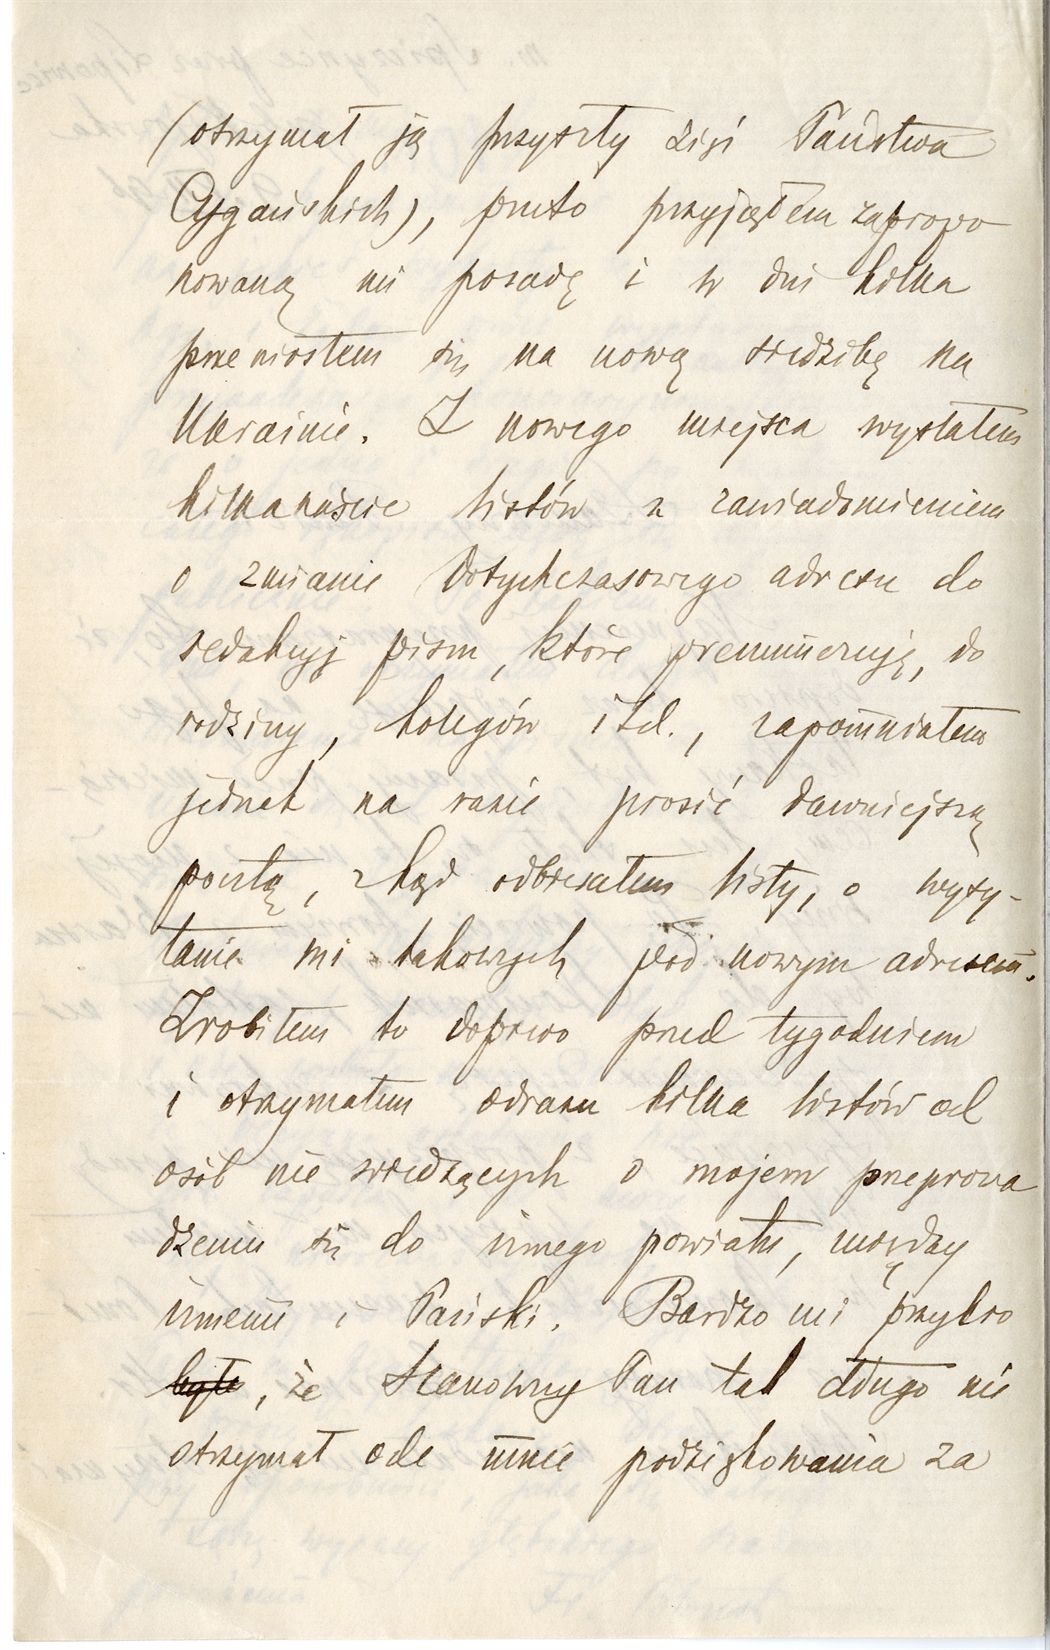 (otrzymał ją przyszły zięć Państwa
Cygańskich), przeto przyjąłem zapropo
nowaną mi posadę i w dni kilka
przeniosłem się na nową siedzibę na
Ukrainie. Z nowego miejsca wysłałem
kilkanaście listów z zawiadomieniem
o zmianie dotychczasowego adresu do
redakcyj pism, które prenumeruję, do
rodziny, kolegów itd., zapomniałem
jednak na razie prosić dawniejszą
pocztę, zkąd odbierałem listy, o wysy-
łanie mi takowych pod nowym adresem.
Zrobiłem to dopiero przed tygodniem
i otrzymałem odrazu kilka listów od
osób nie wiedzących o mojem przeprowa
dzeniu się do innego powiatu, między
innemi i Pański. Bardzo mi przykro
było, że Szanowny Pan tak długo nie
otrzymał ode mnie podziękowania za